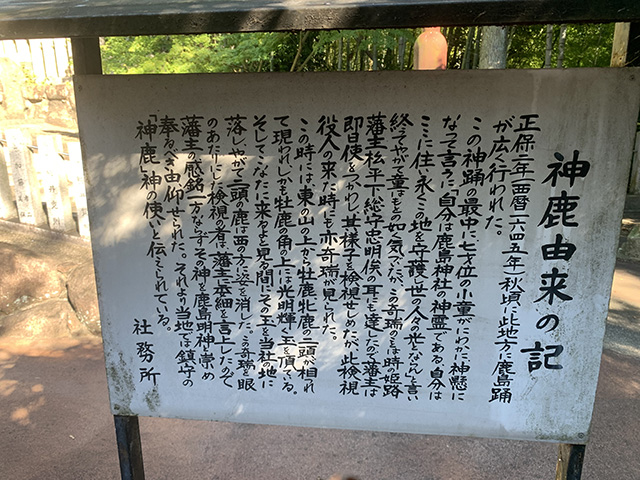 神鹿由来の記
正保二年(西暦一六四五年)秋頃に此地方に鹿島踊
が広く行われた。
この神踊の最中に七才位の小童がにわかに神懸に
なって言うに「自分は鹿島神社の神霊である。自分は
ここに住い永くこの地を守護し世の人の光となん」と言い
終えやがて童はもとの如く気でたが、この奇瑞のもは時姫路
藩主松平下総守忠明侯の耳にも達したので藩主は
即日使をつかわし其様子を検視せしめたが、此検視
役人の来た時にも亦奇瑞が見られた。
この時には東の山の上から牡鹿牝鹿の二頭が相れ
て現われしかも牡鹿の角の上には光明輝く玉を頂ている。
そしてこなたに来るよと見る間にその玉を当社の地に
落しやがて二頭の鹿は西の方に姿を消した。この奇瑞を眼
のあたりにした検視の者は藩主に本細を言上したので
藩主の感銘一方ならずその神を鹿島明神と崇め
奉るべき由仰せられた。それより当地では鎮守の
「神鹿」神の使いと伝えられている。
社務所